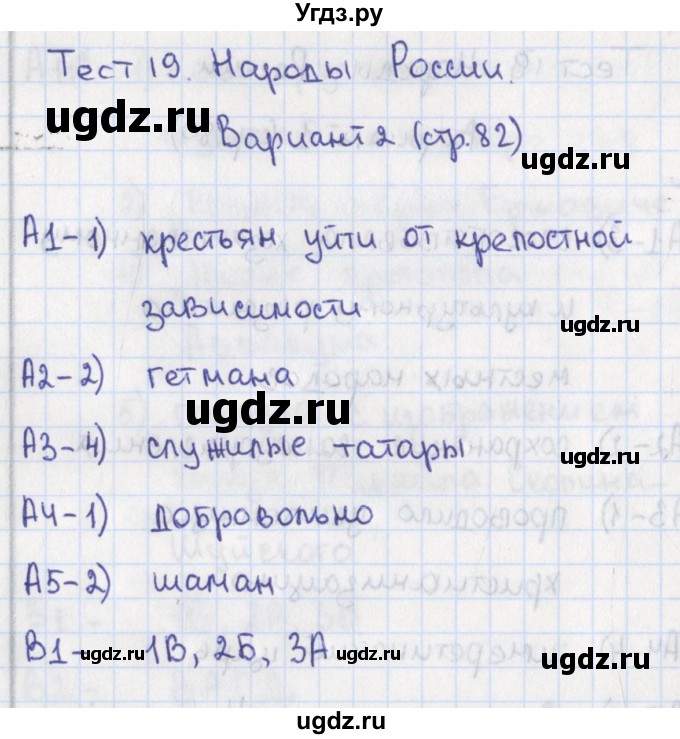 Угдз.ру
Тест 19. Народы России.
ugdz.ru
Вариант 2 (стр.82)
ugdz.ru
А1-1) крестьян уйти от крепостной
зависимости
ugdz.ru
А2-2) гетмана
ugdz.ru
А3-4) служилые татары
ugdz.ru
А4-1) добровольно
А5-2) шаман
В1- ugdz.ru 1В, 2Б, 3А ugdz.ru
ugdz.ru